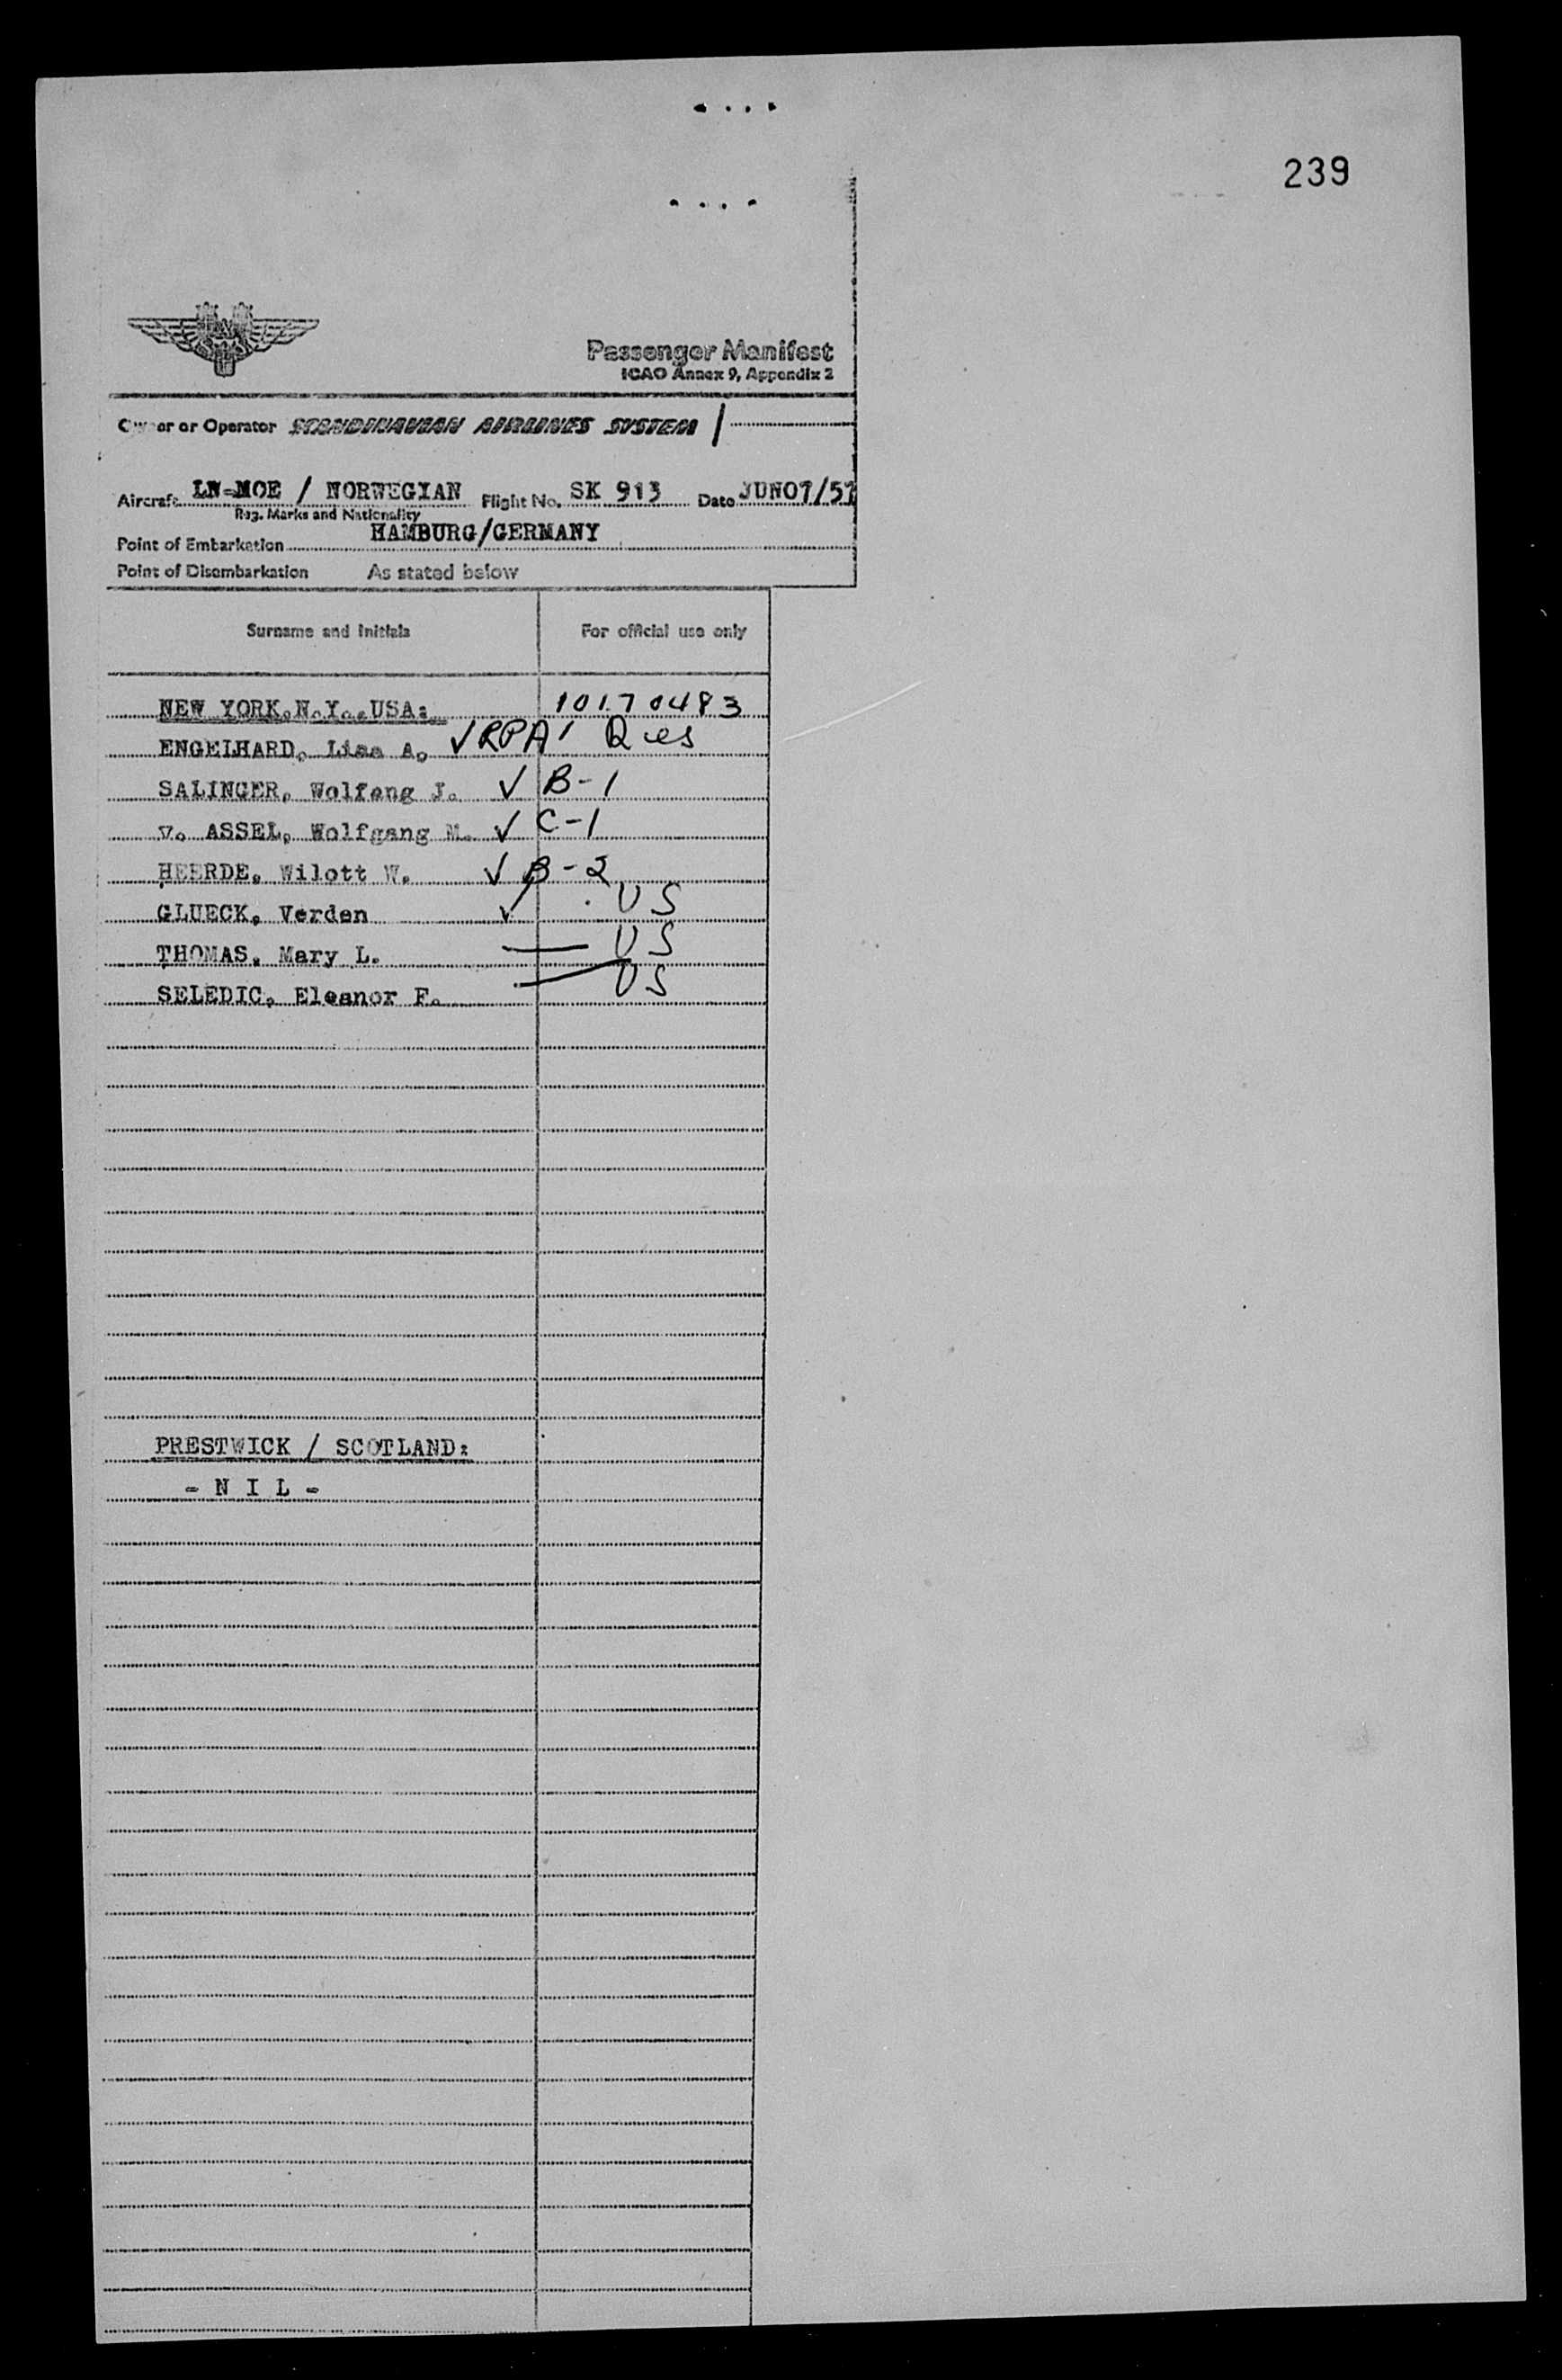 239
Passenger Manifest
ICAO Annex 9, Appendix 2
Owner or Operator SCANDINAVIAN AIRLINES SYSTEM
Aircraft LN-MOE / NORWEGIAN Flight No. SK 913 Date JUN07/57
Reg. Marks and Nationality
Point of Embarkation HAMBURG/GERMANY
Point of Disembarkation As stated below
Surname and Initials For official use only
NEW YORK.N.Y..USA: 10170483
ENGELHARD, Lisa A. √ RPA
SALINGER, Wolfang J. √ B-1
v. ASSEL, Wolfgang M. √ C-1
HEERDE, Wilott W. √ B-2
GLUECK, Verden √ US
THOMAS, Mary L. — US
SELEDIC, Eleanor F. — US
PRESTWICK / SCOTLAND:
- N I L -